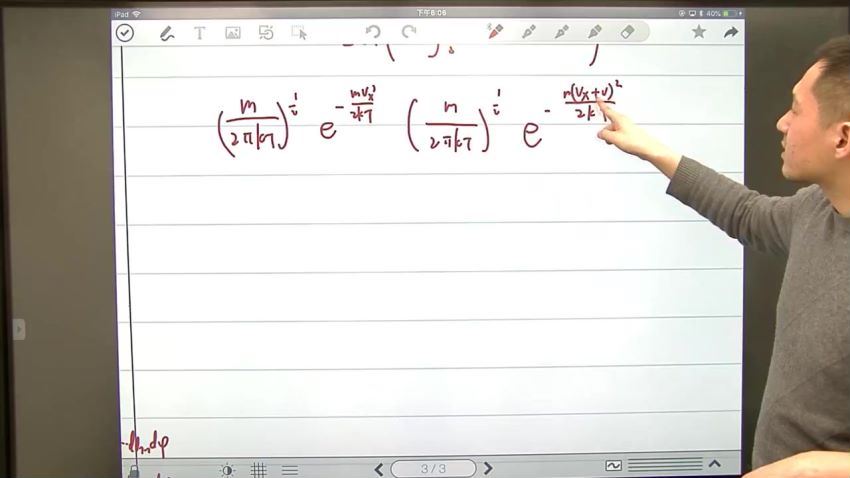 iPad 下午6:06 40%
(m/2πkT)^{1/2} e^{-mv_x²/2kT} (m/2πkT)^{1/2} e^{-m(v_x+v)²/2kT}
dφ
3/3